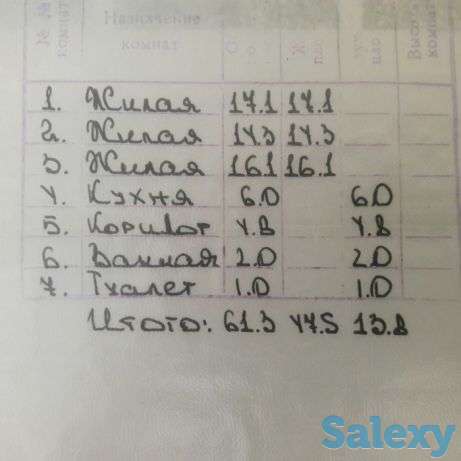 № № комнат
Назначение комнат
1. Жилая 17.1 17.1
2. Жилая 14.3 14.3
3. Жилая 16.1 16.1
4. Кухня 6.0 6.0
5. Коридор 4.8 4.8
6. Ванная 2.0 2.0
7. Туалет 1.0 1.0
Итого: 61.3 47.5 13.8
Salexy